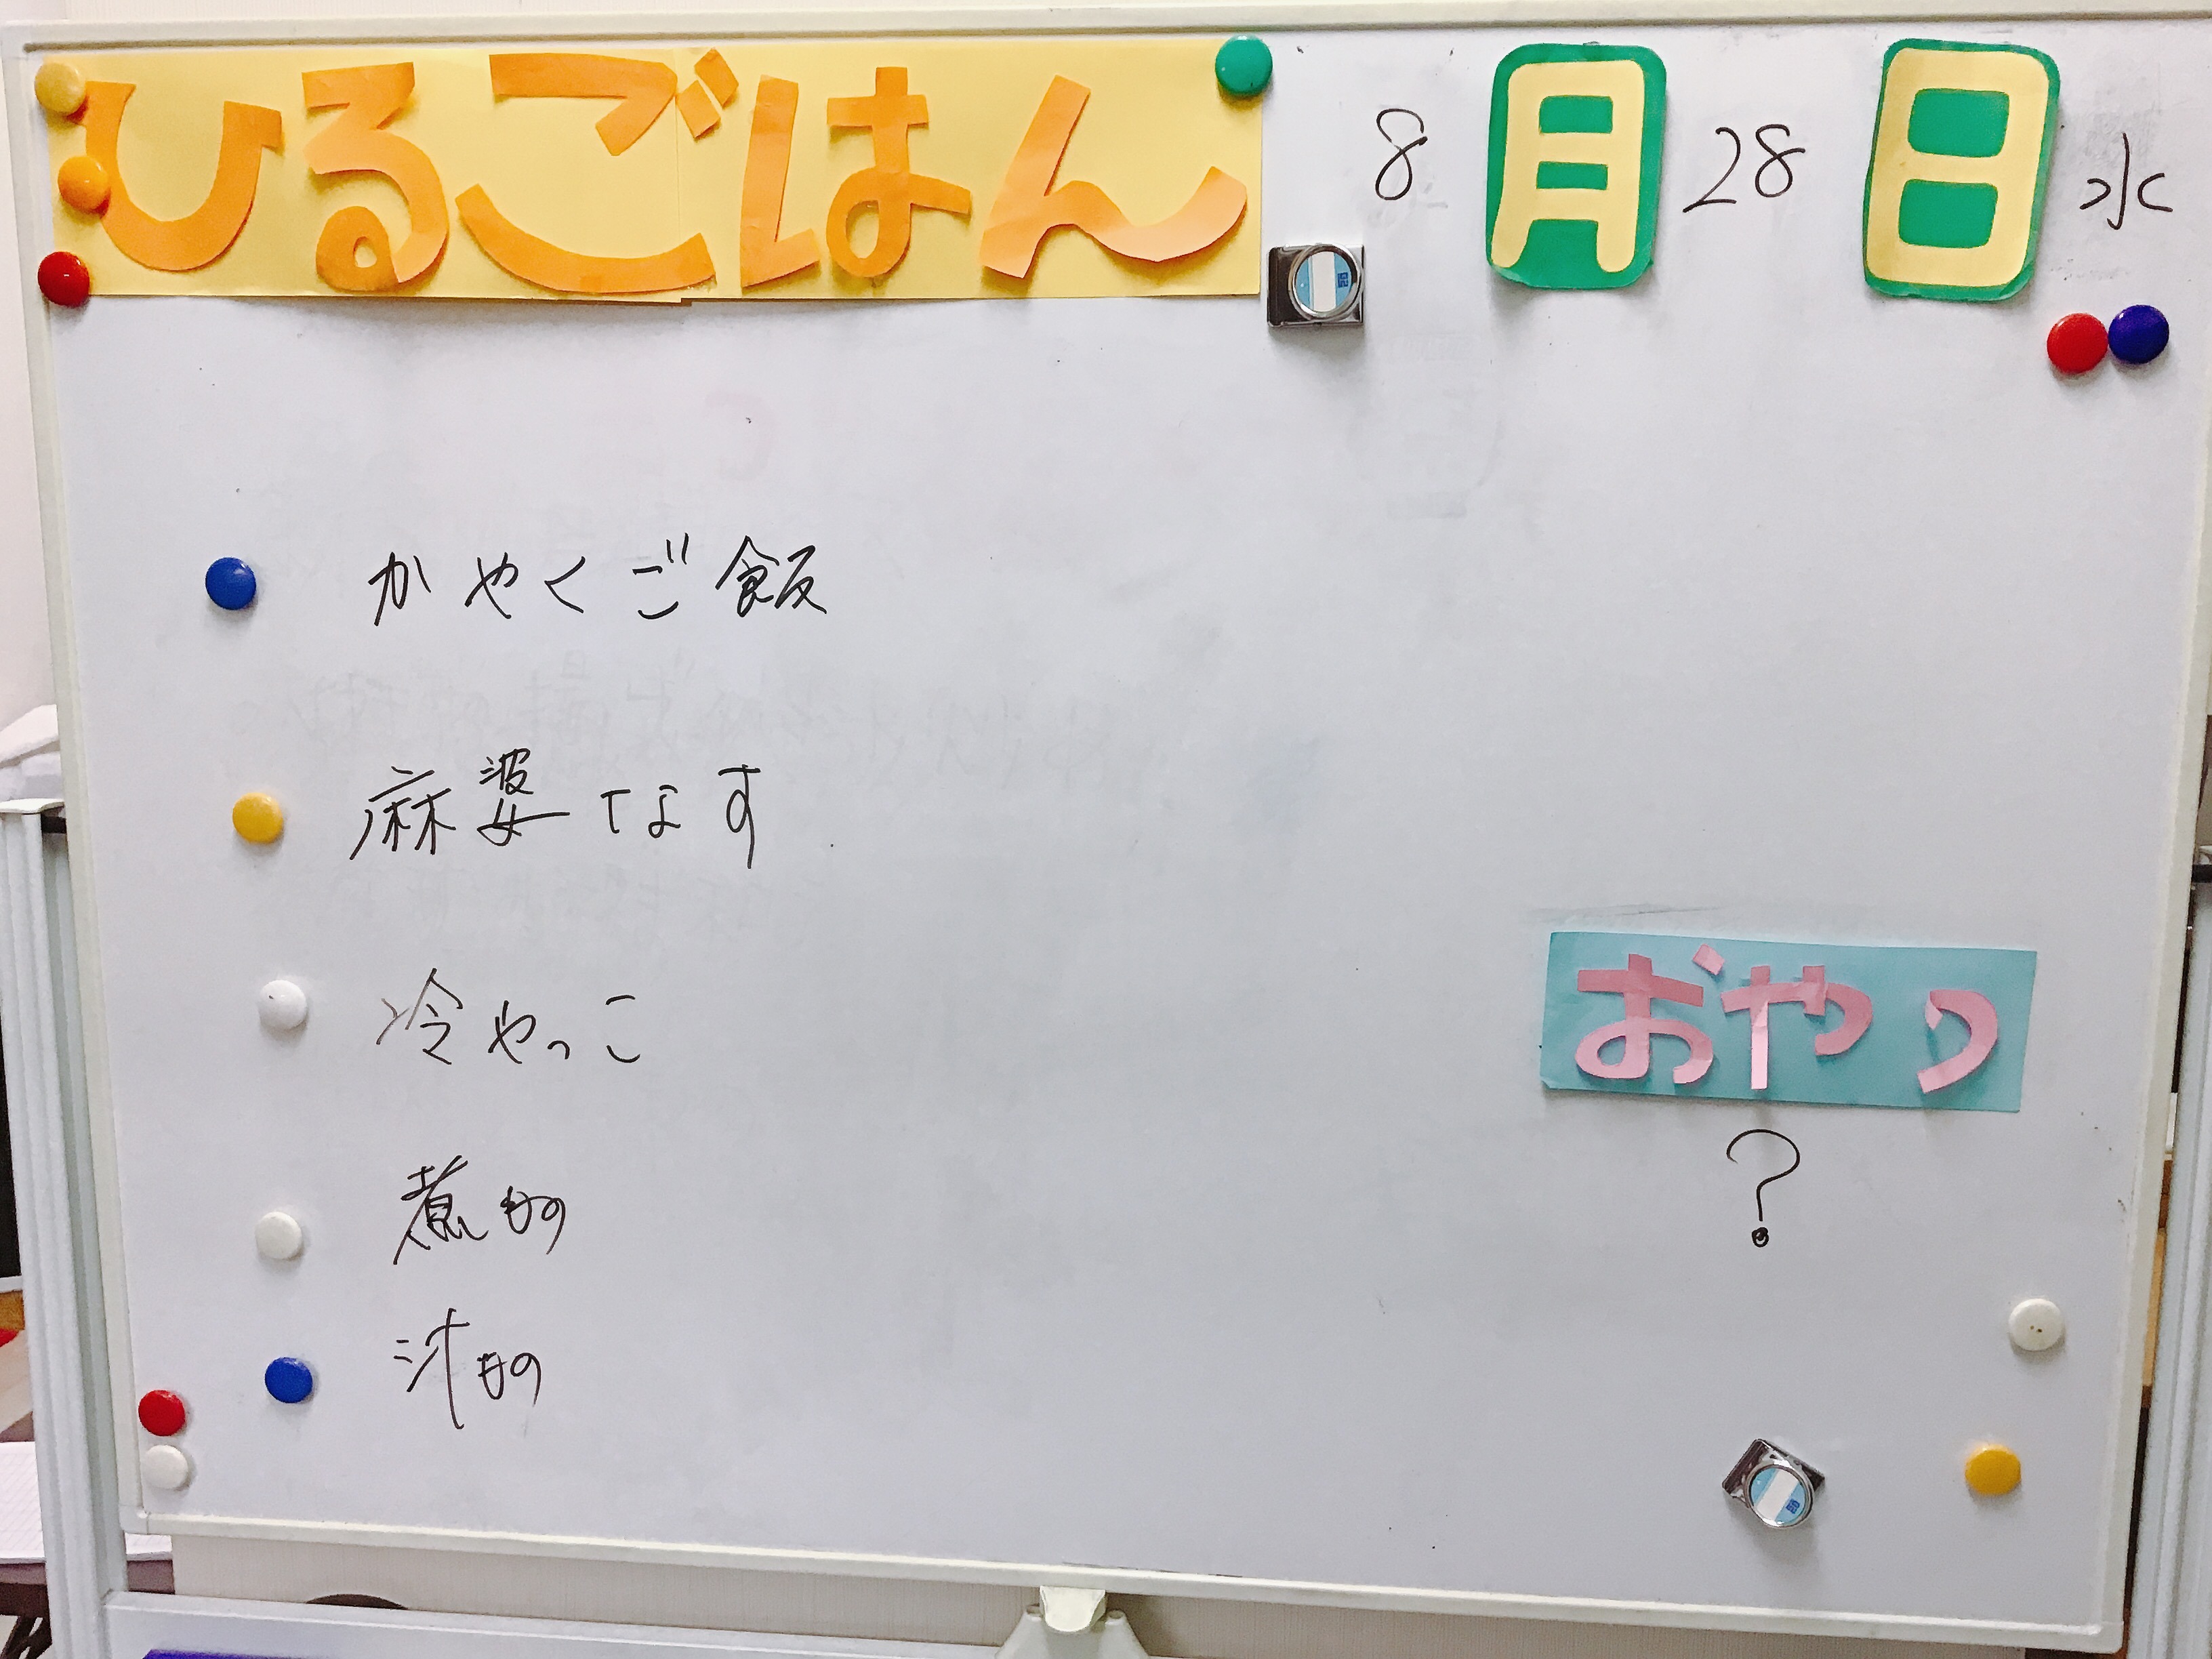 ひるごはん 8月28日 水
かやくご飯
麻婆なす
冷やっこ
煮もの
汁もの
おやつ
?